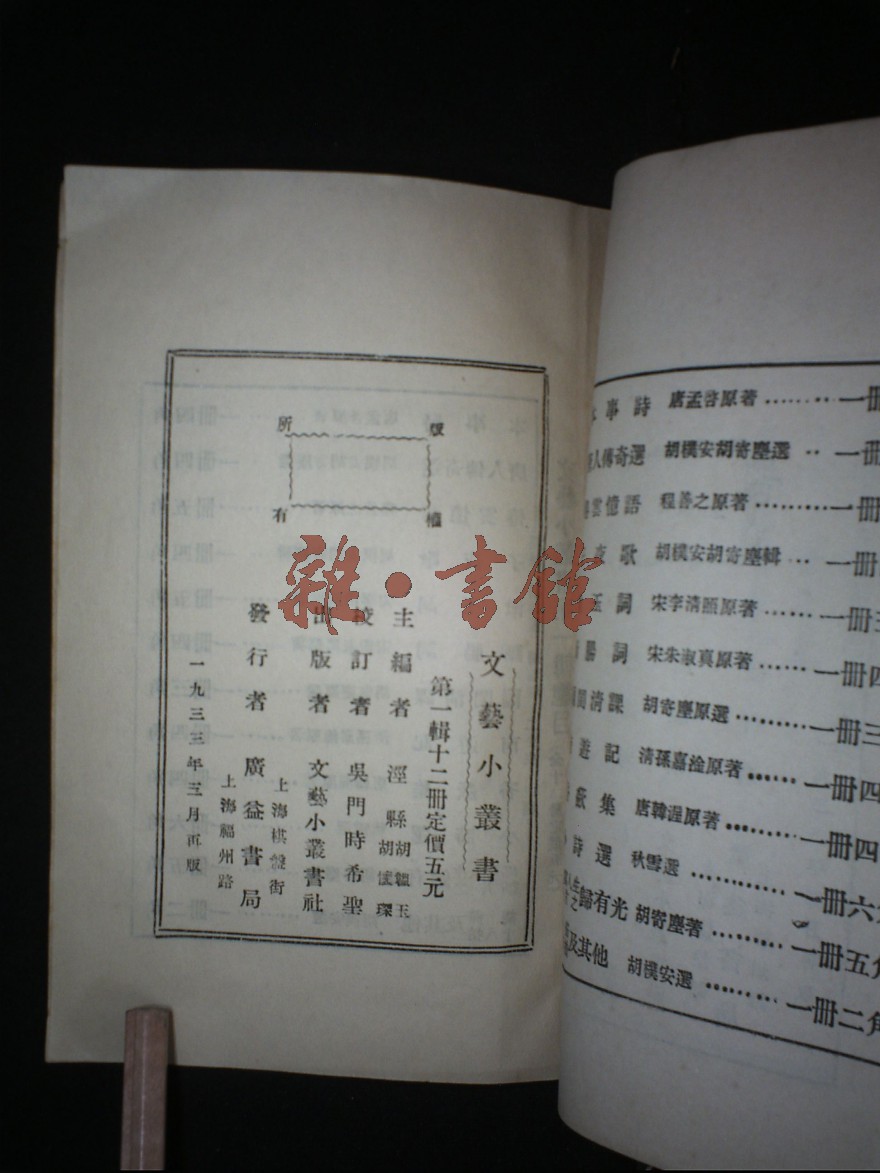 雜·書館
版權
所有
文藝小叢書
第一輯十二冊定價五元
主編者 涇縣胡韞玉 胡懷琛
校訂者 吳門時希聖
出版者 文藝小叢書社
上海棋盤街
發行者 廣益書局
上海福州路
一九三三年三月再版
事詩 唐孟棨原著………一冊
人傳奇選 胡樸安胡寄塵選 ‥一冊
雲憶語 程善之原著………一冊
夜歌 胡樸安胡寄塵輯 …一冊
玉詞 宋李清照原著………一冊
詞 宋朱淑真原著………一冊四
閨清課 胡寄塵原選………一冊三
遊記 清孫嘉淦原著………一冊四
奩集 唐韓渥原著………一冊四
詩選 秋雲選…………一冊六
歸有光 胡寄塵著………一冊五角
及其他 胡樸安選………一冊二角